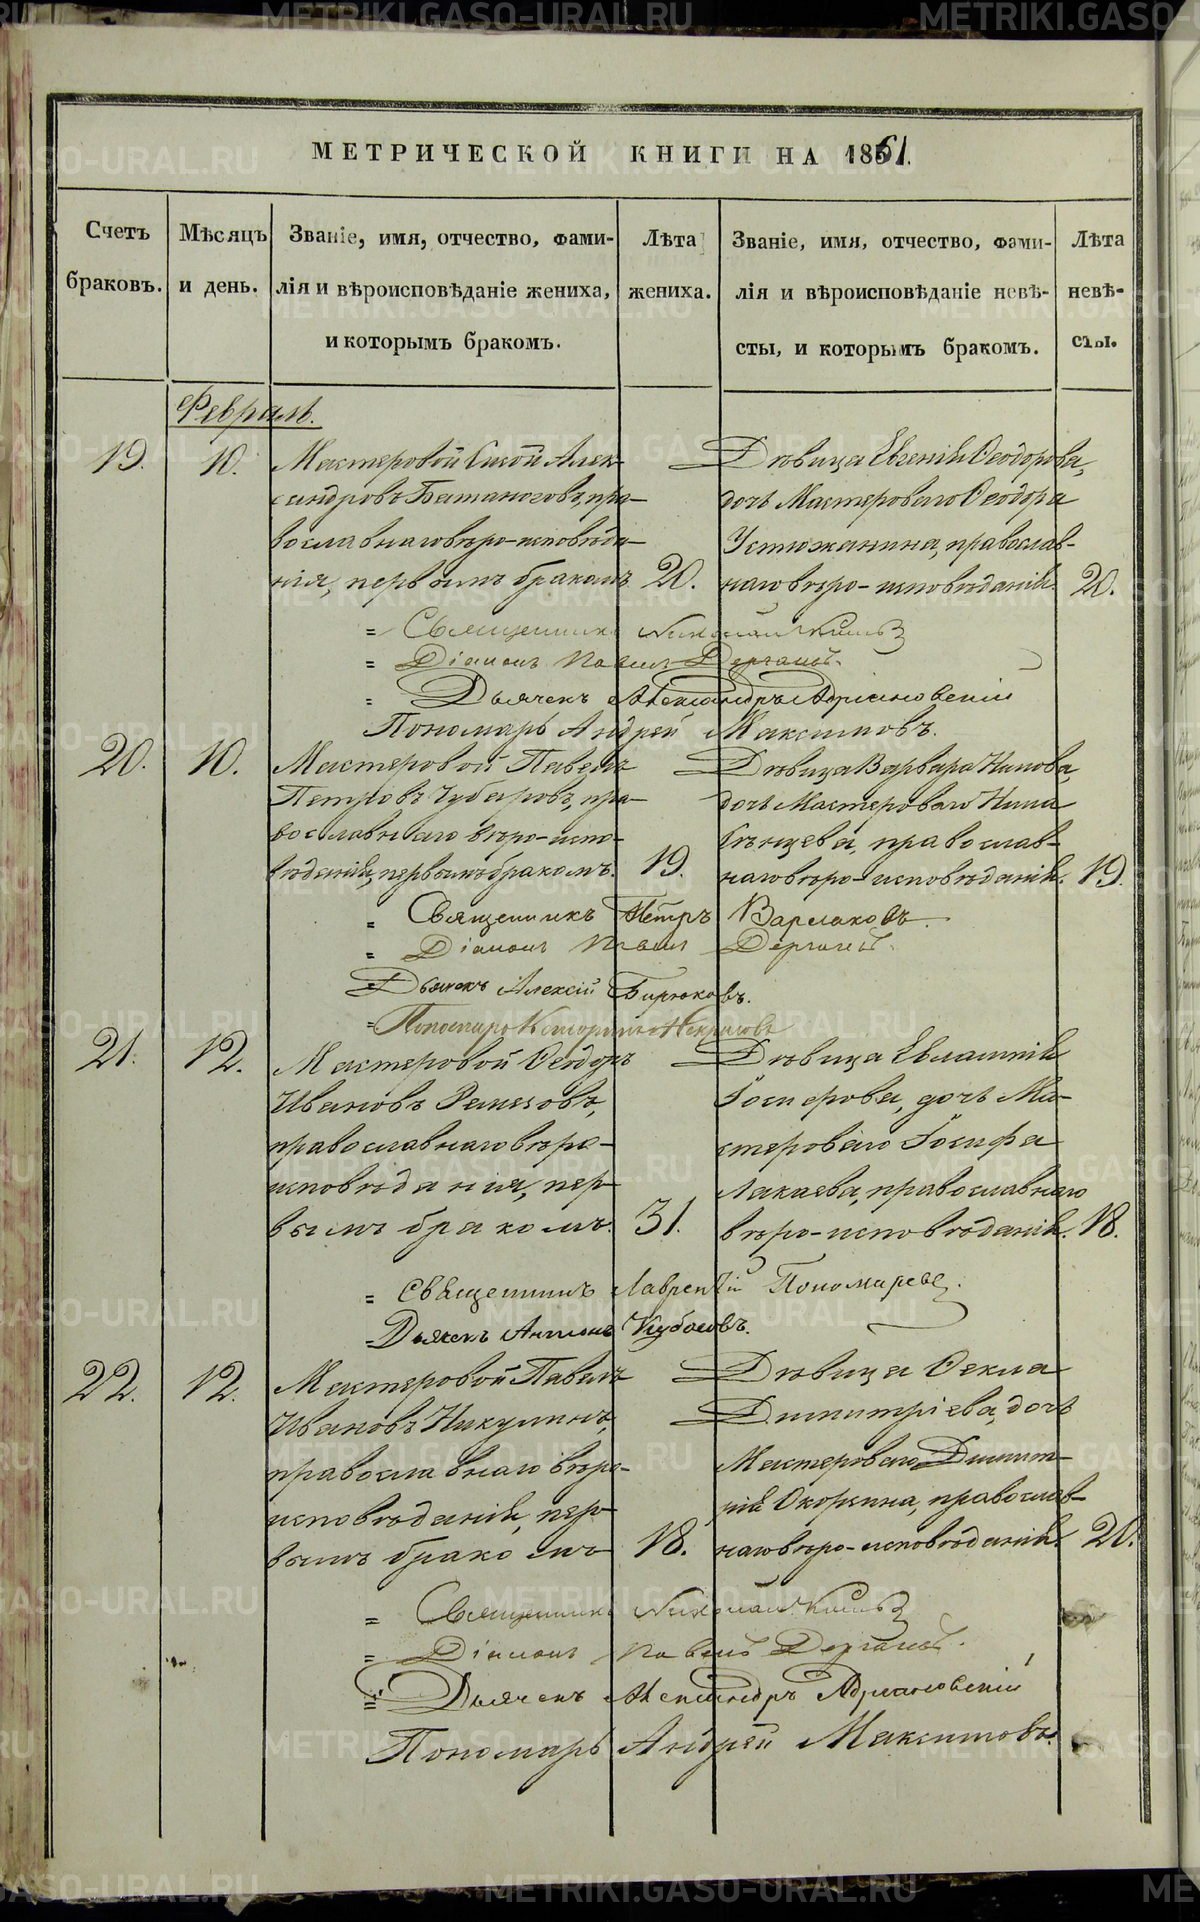 МЕТРИЧЕСКОЙ КНИГИ НА 1861.
Счетъ браковъ.
Мѣсяцъ и день.
Званіе, имя, отчество, фами-
лія и вѣроисповѣданіе жениха,
и которымъ бракомъ.
Лѣта жениха.
Званіе, имя, отчество, фами-
лія и вѣроисповѣданіе невѣ-
сты, и которымъ бракомъ.
Лѣта невѣ-
сты.
Февраль.
19. 10.
Мастеровой Алек-
сандровъ Баташовъ, пра-
вославнаго вѣро-исповѣда-
нія, первымъ бракомъ 20.
Дѣвица Евгенія Ѳеодорова,
дочь Мастероваго Ѳеодора
Устюжанина, православ-
наго вѣро-исповѣданія. 20.
= Священникъ Николай
= Діаконъ Павелъ Дергачевъ.
= Дьячекъ Александръ Адріановскій
Пономарь Андрей Максимовъ.
20. 10.
Мастеровой Павелъ
Петровъ Чубаровъ, пра-
вославнаго вѣро-испо-
вѣданія, первымъ бракомъ. 19.
Дѣвица Варвара Нилова,
дочь Мастероваго Нила
православ-
наго вѣро-исповѣданія. 19.
= Священникъ Петръ Варлаковъ.
= Діаконъ Павелъ Дергачевъ.
= Дьячекъ Алексій Бирюковъ.
= Пономарь Некрасовъ
21. 12.
Мастеровой Ѳеодоръ
Ивановъ Ремезовъ,
православнаго вѣро-
исповѣданія, пер-
вымъ бракомъ. 31.
Дѣвица Евлампія
Іосифова, дочь Ма-
стероваго Іосифа
Лакаева, православнаго
вѣро-исповѣданія. 18.
= Священникъ Лаврентій Пономаревъ.
= Дьячекъ Антонъ Кубасовъ.
22. 12.
Мастеровой Павелъ
Ивановъ Никулинъ,
православнаго вѣро-
исповѣданія, пер-
вымъ бракомъ 18.
Дѣвица Ѳекла
Димитріева, дочь
Мастероваго Димит-
рія Окоркина, православ-
наго вѣро-исповѣданія. 20.
= Священникъ Николай
= Діаконъ Павелъ Дергачевъ.
= Дьячекъ Александръ Адріановскій
Пономарь Андрей Максимовъ.
METRIKI.GASO-URAL.RU